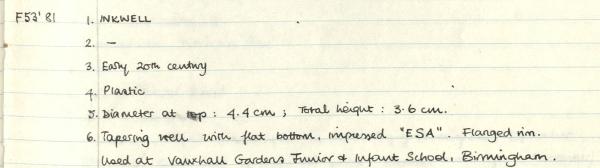 F53'81 1. INKWELL
2. –
3. Early 20th century
4. Plastic
5. Diameter at top : 4.4 cm ; Total height : 3.6 cm.
6. Tapering well with flat bottom, impressed "ESA". Flanged rim.
Used at Vauxhall Gardens Junior & Infant School, Birmingham.